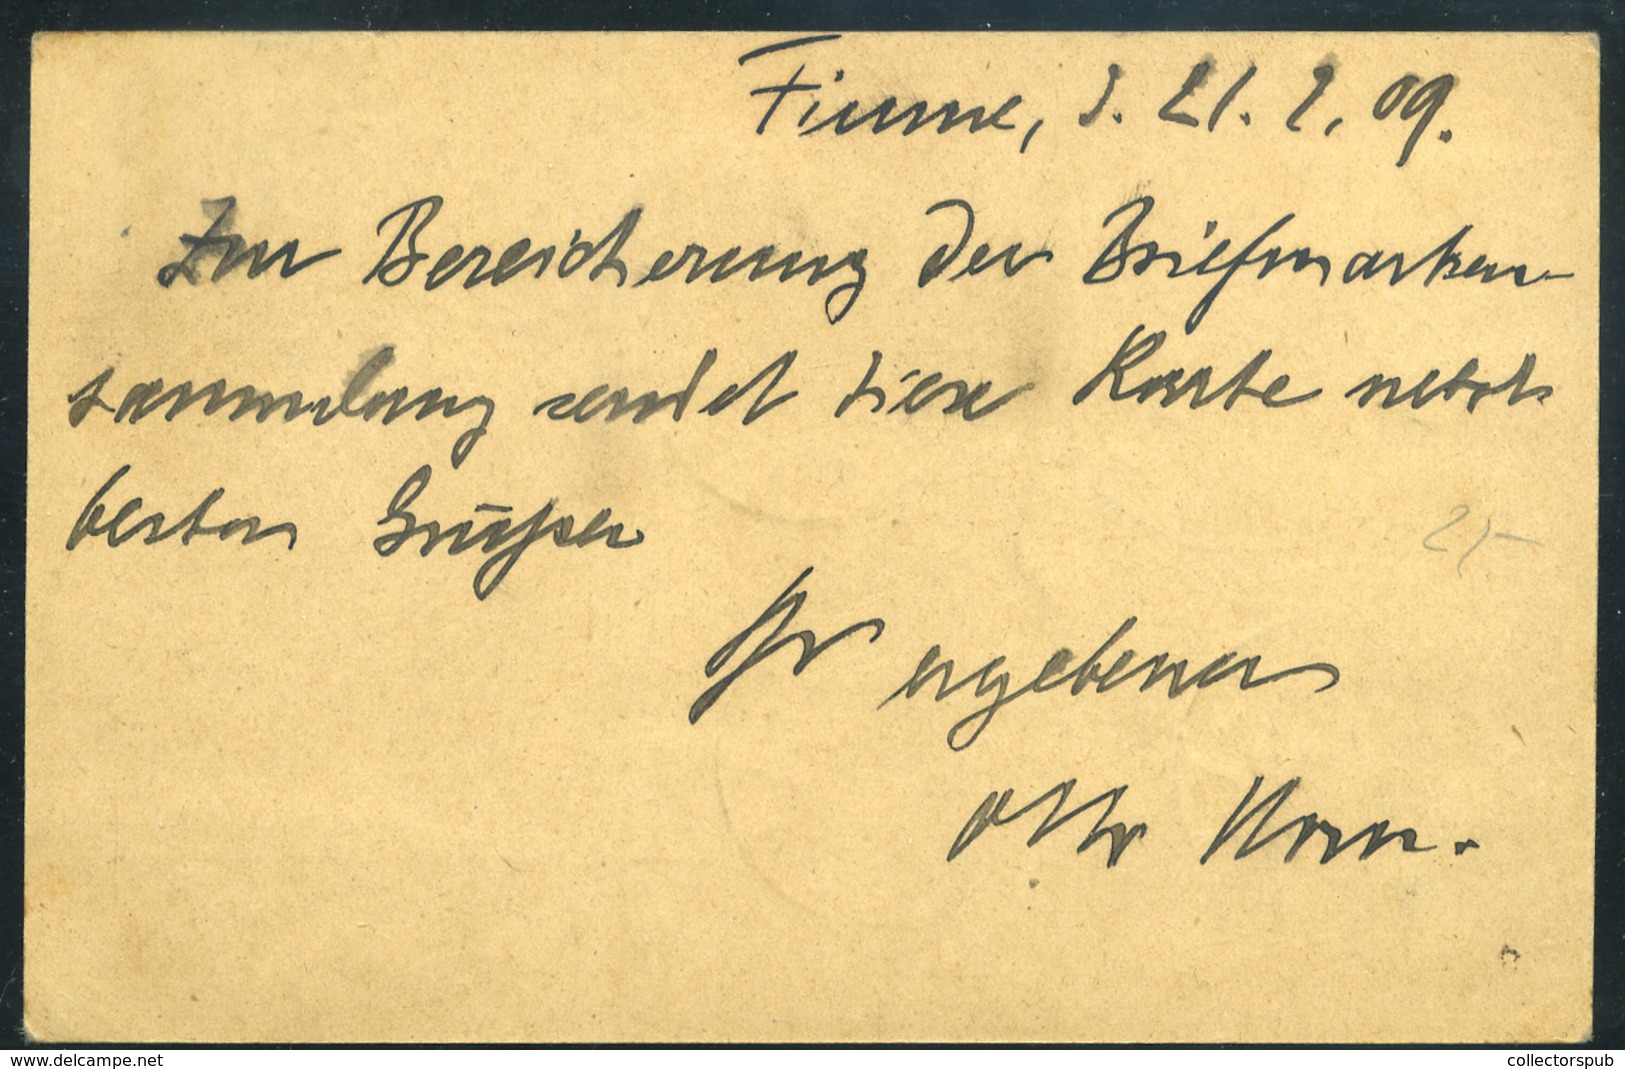 Fiume, d. 21. 2. 09.
Zur Bereicherung der Briefmarken-
sammlung sendet diese Karte nebst
besten Grüßen
Ihr ergebener
Otto Horn.
25-
www.delcampe.net
collectorspub